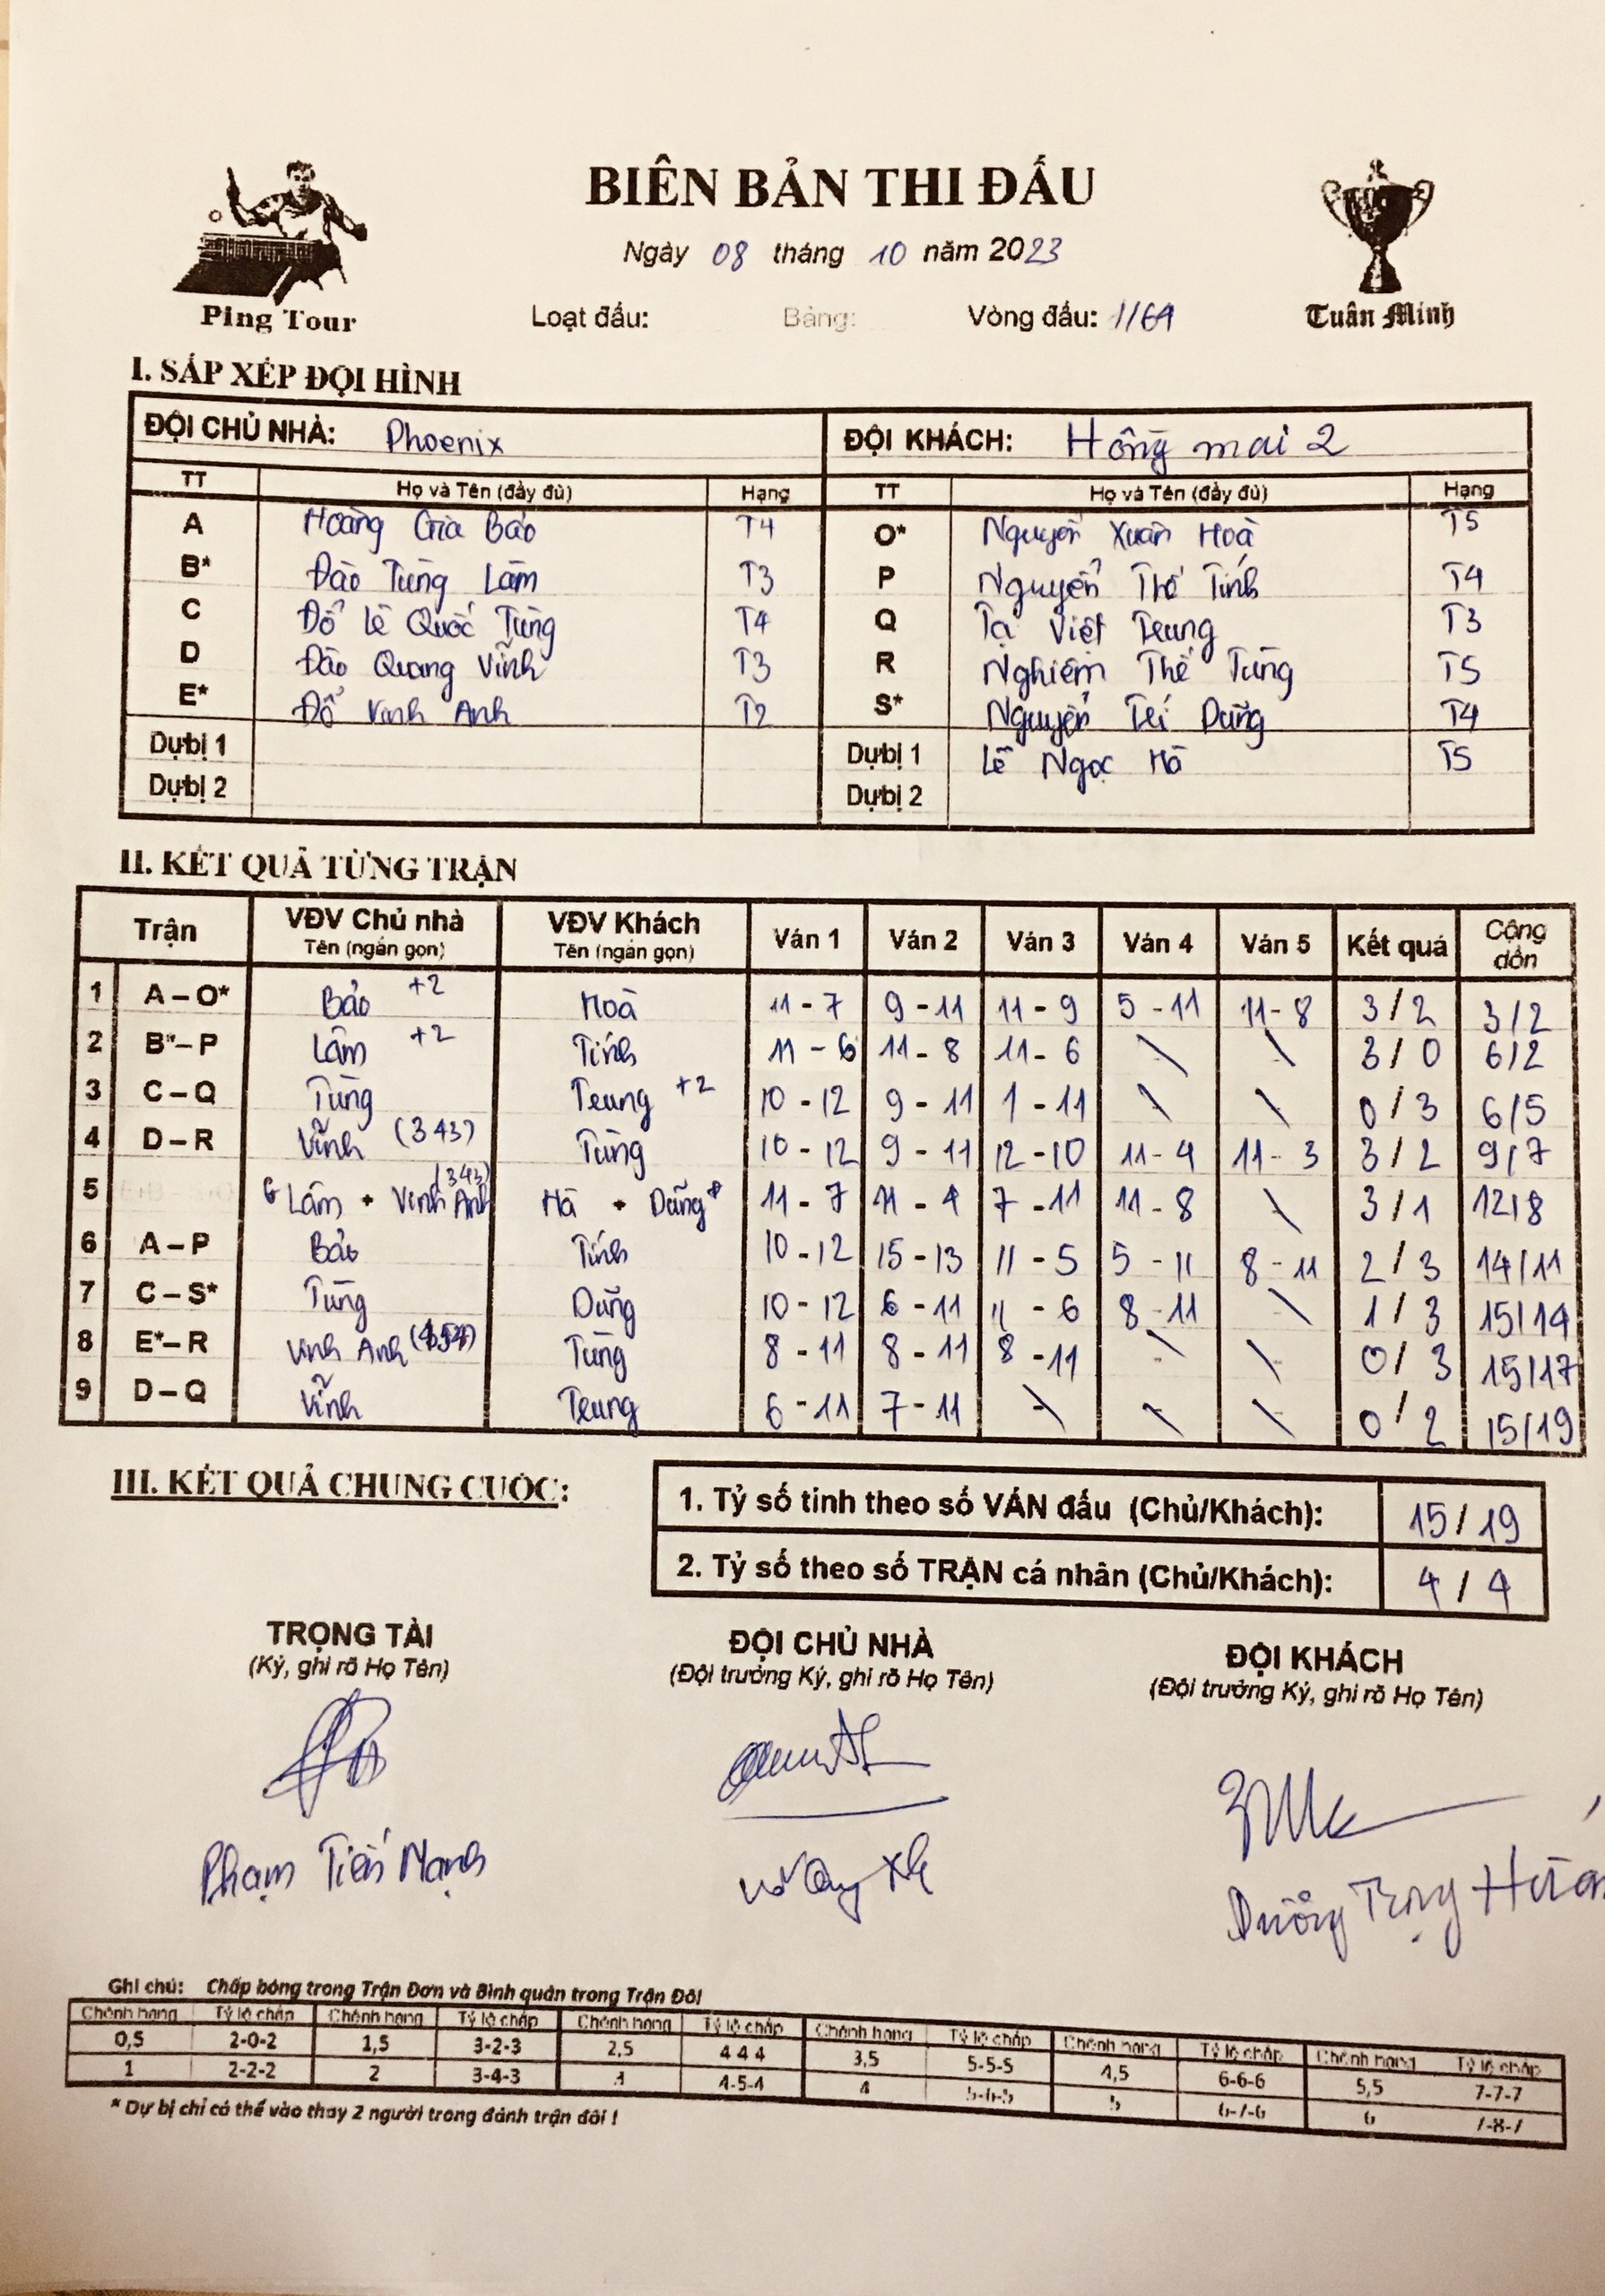 BIÊN BẢN THI ĐẤU
Ngày 08 tháng 10 năm 2023
Ping Tour
Loạt đấu: Bảng: Vòng đấu: 1/64
Tuân Minh
I. SẮP XẾP ĐỘI HÌNH
ĐỘI CHỦ NHÀ: Phoenix ĐỘI KHÁCH: Hồng mai 2
TT Họ và Tên (đầy đủ) Hạng TT Họ và Tên (đầy đủ) Hạng
A Hoàng Gia Bảo T4 O* Nguyễn Xuân Hoà T5
B* Đào Tùng Lâm T3 P Nguyễn Thế Tính T4
C Đỗ Lê Quốc Tùng T4 Q Tạ Việt Trung T3
D Đào Quang Vĩnh T3 R Nghiêm Thế Tùng T5
E* Đỗ Vinh Anh T2 S* Nguyễn Trí Dũng T4
Dự bị 1 Dự bị 1 Lê Ngọc Hà T5
Dự bị 2 Dự bị 2
II. KẾT QUẢ TỪNG TRẬN
Trận VĐV Chủ nhà Tên (ngắn gọn) VĐV Khách Tên (ngắn gọn) Ván 1 Ván 2 Ván 3 Ván 4 Ván 5 Kết quả Cộng dồn
1 A – O* Bảo +2 Hoà 11 - 7 9 - 11 11 - 9 5 - 11 11 - 8 3 / 2 3/2
2 B* – P Lâm +2 Tính 11 - 6 11 - 8 11 - 6 \ \ 3 / 0 6/2
3 C – Q Tùng Trung +2 10 - 12 9 - 11 1 - 11 \ \ 0 / 3 6/5
4 D – R Vĩnh (343) Tùng 10 - 12 9 - 11 12 - 10 11 - 4 11 - 3 3 / 2 9/7
5 Lâm + Vinh Anh (343) Hà + Dũng 11 - 7 11 - 4 7 - 11 11 - 8 \ 3 / 1 12/8
6 A – P Bảo Tính 10 - 12 15 - 13 11 - 5 5 - 11 8 - 11 2 / 3 14/11
7 C – S* Tùng Dũng 10 - 12 6 - 11 11 - 6 8 - 11 \ 1 / 3 15/14
8 E* – R Vinh Anh Tùng 8 - 11 8 - 11 8 - 11 \ \ 0 / 3 15/17
9 D – Q Vĩnh Trung 6 - 11 7 - 11 \ \ \ 0 / 2 15/19
III. KẾT QUẢ CHUNG CUỘC:
1. Tỷ số tính theo số VÁN đấu (Chủ/Khách): 15 / 19
2. Tỷ số theo số TRẬN cá nhân (Chủ/Khách): 4 / 4
TRỌNG TÀI ĐỘI CHỦ NHÀ ĐỘI KHÁCH
(Ký, ghi rõ Họ Tên) (Đội trưởng Ký, ghi rõ Họ Tên) (Đội trưởng Ký, ghi rõ Họ Tên)
Phạm Tiến Mạnh
Dương Trọng
Ghi chú: Chấp bóng trong Trận Đơn và Bình quân trong Trận Đôi
Chênh hạng Tỷ lệ chấp Chênh hạng Tỷ lệ chấp Chênh hạng Tỷ lệ chấp Chênh hạng Tỷ lệ chấp Chênh hạng Tỷ lệ chấp Chênh hạng Tỷ lệ chấp
0,5 2-0-2 1,5 3-2-3 2,5 4 4 4 3,5 5-5-5 4,5 6-6-6 5,5 7-7-7
1 2-2-2 2 3-4-3 3 4-5-4 4 5-6-5 5 6-7-6 6 7-8-7
* Dự bị chỉ có thể vào thay 2 người trong đánh trận đôi !